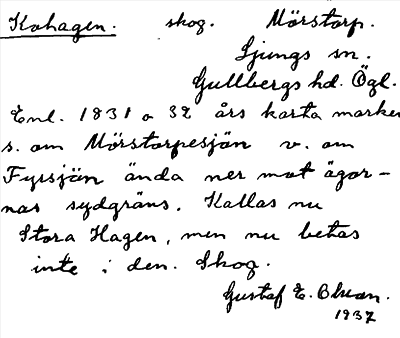 Kohagen. skog. Mörstorp.
Ljungs sn.
Gullbergs hd. Ögl.
Enl. 1831 o 32 års karta marken
s. om Mörstorpesjön v. om
Fyrsjön ända ner mot ägor-
nas sydgräns. Kallas nu
Stora Hagen, men nu betas
inte i den. Skog.
Gustaf E. Olson.
1937